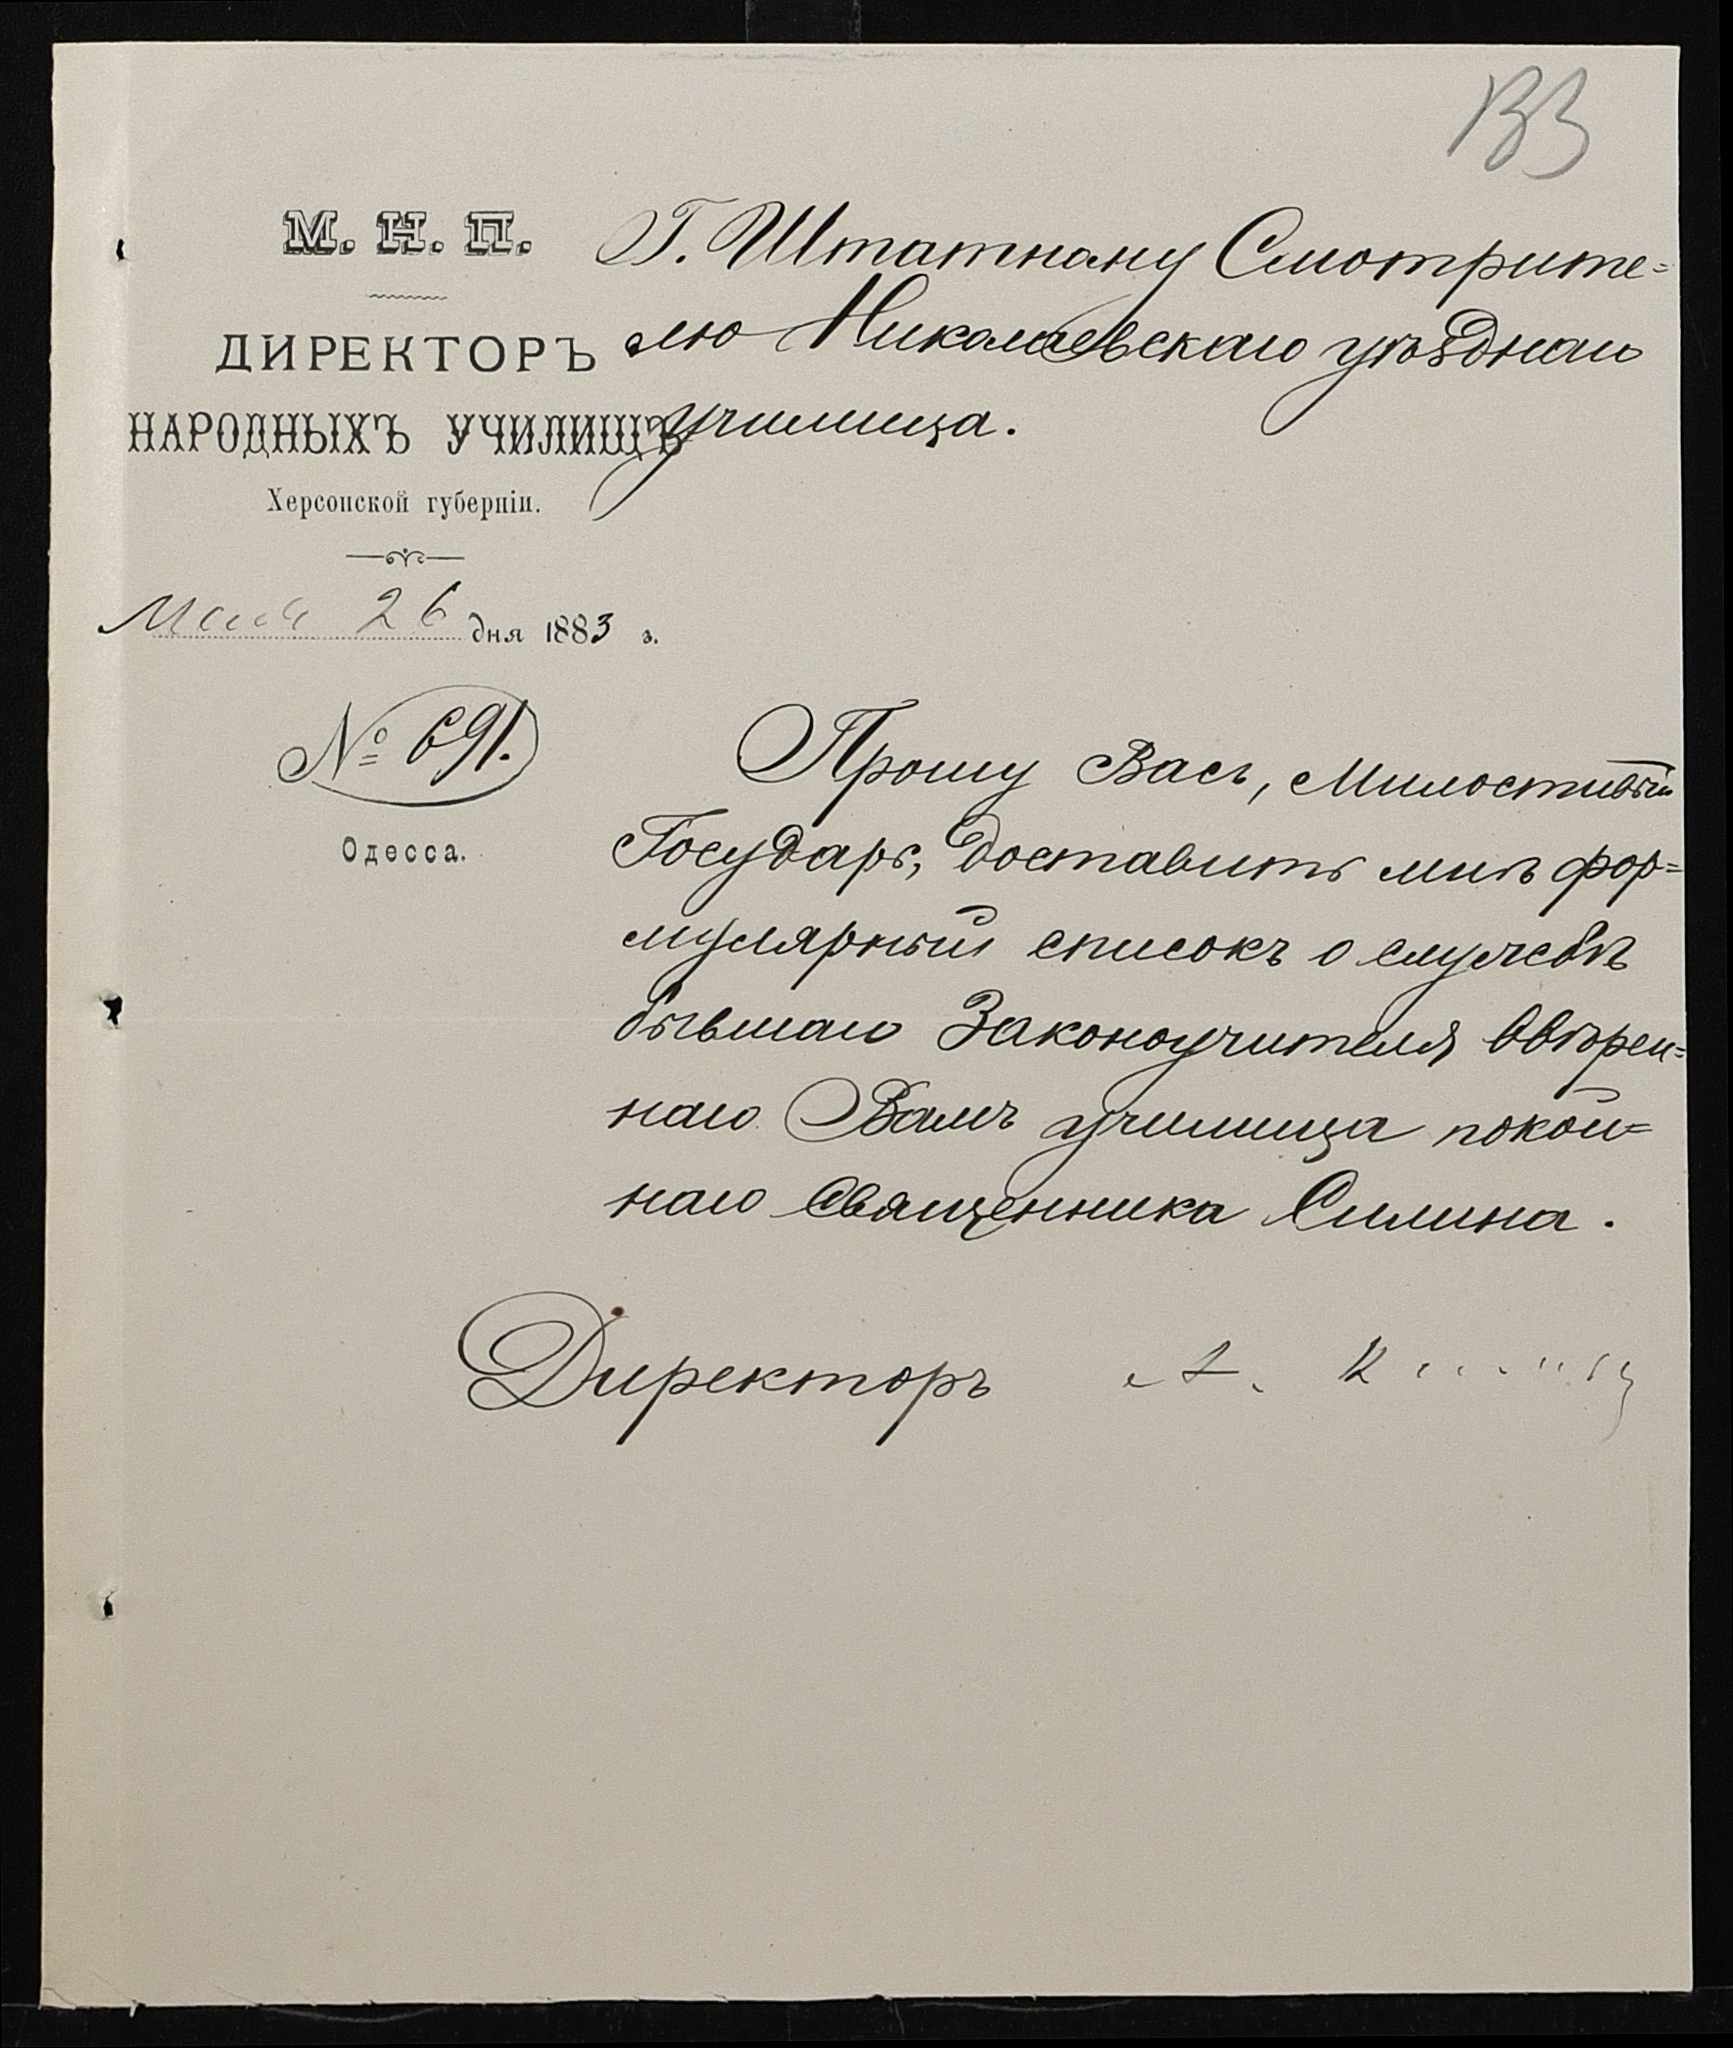 133
М. Н. П.
ДИРЕКТОРЪ
НАРОДНЫХЪ УЧИЛИЩЪ
Херсонской губерніи.
Мая 26 дня 1883 г.
№ 691.
Одесса.
Г. Штатному Смотрите=
лю Николаевскаго уѣзднаго
училища.
Прошу Васъ, Милостивый
Государь, доставить мнѣ фор=
мулярный списокъ о службѣ
бывшаго Законоучителя ввѣрен=
наго Вамъ училища покой=
наго Священника Силина.
Директоръ А.